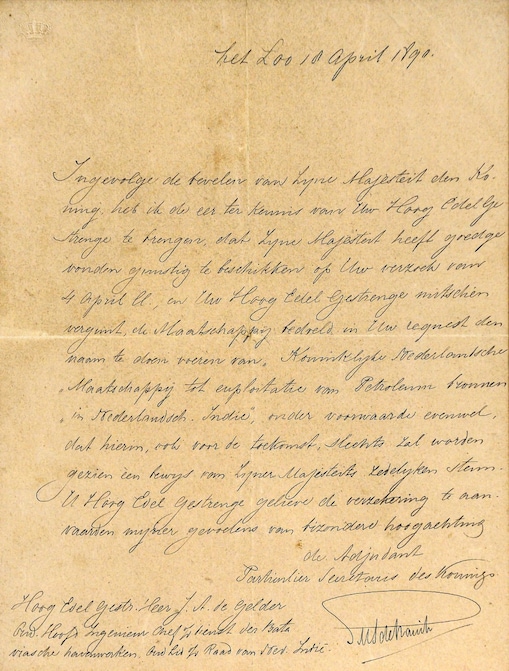 het Loo 18 April 1890.
Ingevolge de bevelen van Zijne Majesteit den Ko-
ning, heb ik de eer ter kennis van Uw Hoog Edel Ge
strenge te brengen, dat Zijne Majesteit heeft goedge
vonden gunstig te beschikken op Uw verzoek van
4 April ll., en Uw Hoog Edel Gestrenge mitsdien
vergunt, de Maatschappij bedoeld in Uw request den
naam te doen voeren van „Koninklijke Nederlandsche
„Maatschappij tot exploitatie van Petroleum bronnen
„in Nederlandsch-Indië", onder voorwaarde evenwel,
dat hierin, ook voor de toekomst, slechts zal worden
gezien een bewijs van Zijner Majesteits zedelijken steun.
U Hoog Edel Gestrenge gelieve de verzekering te aan-
vaarden mijner gevoelens van bizondere hoogachting
de Adjudant
Particulier Secretaris des Konings
Hoog Edel Gestr. Heer J. A. de Gelder
Oud. Hoofd Ingenieur Chef v/d dienst der Bata
viasche havenwerken. Oud Lid v/d Raad van Ned. Indië.